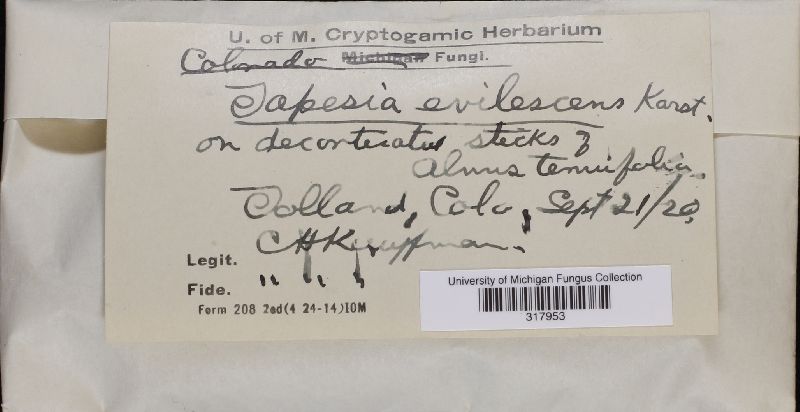 U. of M. Cryptogamic Herbarium
Colorado Michigan Fungi.
Tapesia evilescens Karst.
on decorticated sticks of
Alnus tenuifolia.
Tolland, Colo, Sept 21/20,
Legit. CHKauffman.
Fide. " " "
Form 208 2ed(4 24-14)10M
University of Michigan Fungus Collection
317953